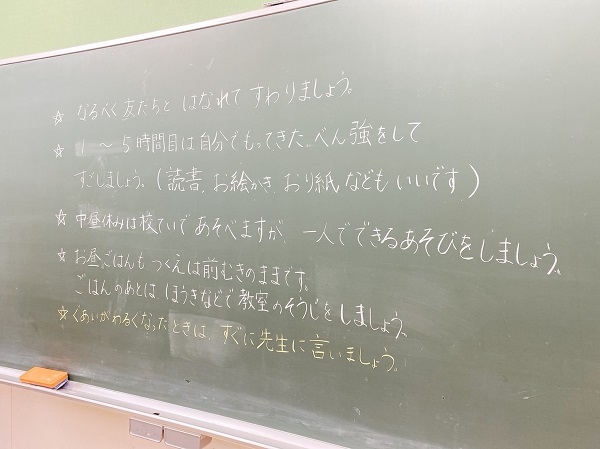 ☆ なるべく友だちと はなれて すわりましょう。
☆ 1〜5時間目は自分でもってきた べん強をして
すごしましょう。(読書、お絵かき、おり紙などもいいです)
☆ 中昼休みは校ていであそべますが、一人でできるあそびをしましょう。
☆ お昼ごはんも つくえは前むきのままです。
ごはんのあとは、ほうきなどで教室のそうじをしましょう。
☆ ぐあいがわるくなったときは、すぐに先生に言いましょう。